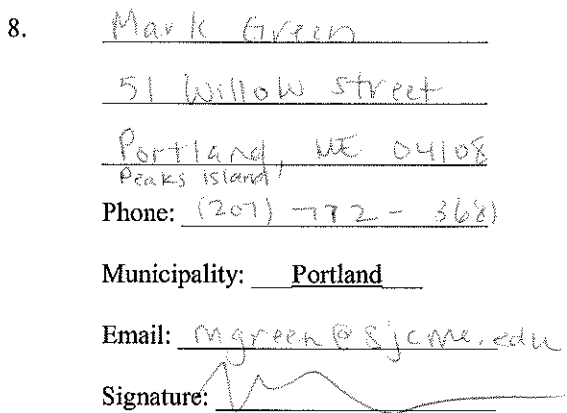 8. Mark Green
51 Willow Street
Portland, ME 04108
Peaks Island
Phone: (207) -772- 3681
Municipality: Portland
Email: mgreen@sjcme.edu
Signature: